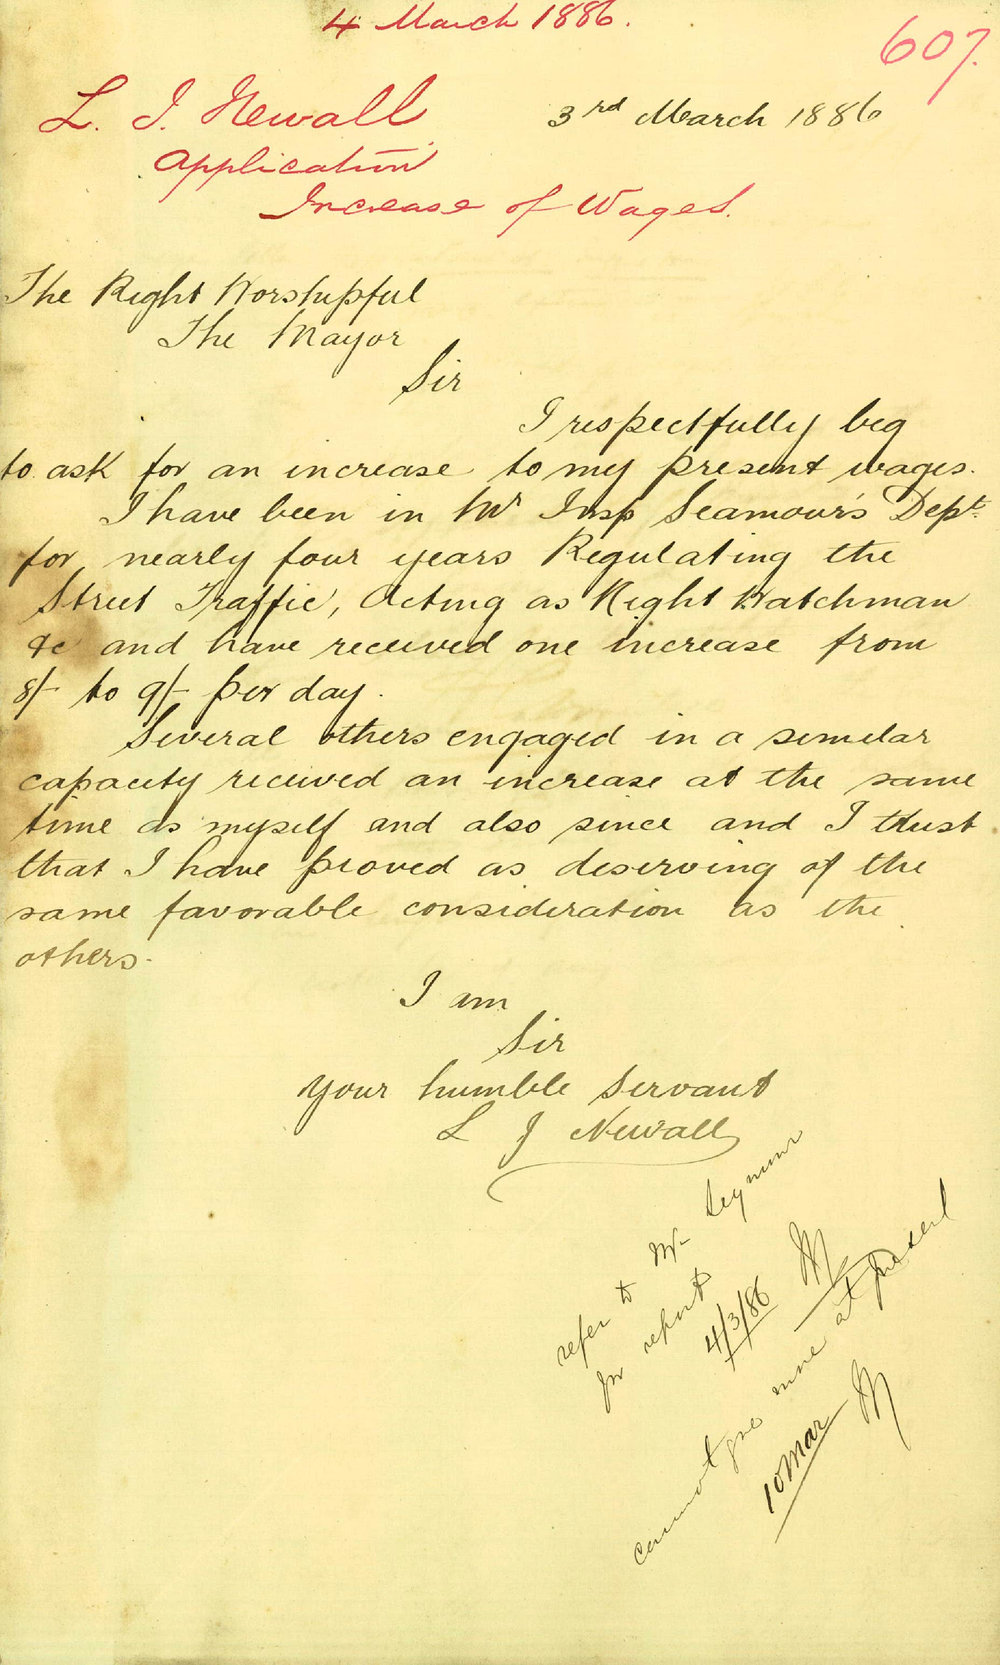 4 March 1886.
607.
L. J. Newall
3rd March 1886
Application
Increase of Wages.
The Right Worshipful
The Mayor
Sir
I respectfully beg
to ask for an increase to my present wages.
I have been in Mr Insp Seamour's Dept.
for nearly four years Regulating the
Street Traffic, Acting as Night Watchman
&c and have received one increase from
8/- to 9/- per day.
Several others engaged in a similar
capacity received an increase at the same
time as myself and also since and I trust
that I have proved as deserving of the
same favorable consideration as the
others.
I am
Sir
Your humble Servant
L J Newall
refer to Mr Seymour
for report
4/3/86
cannot give more at present
10 Mar